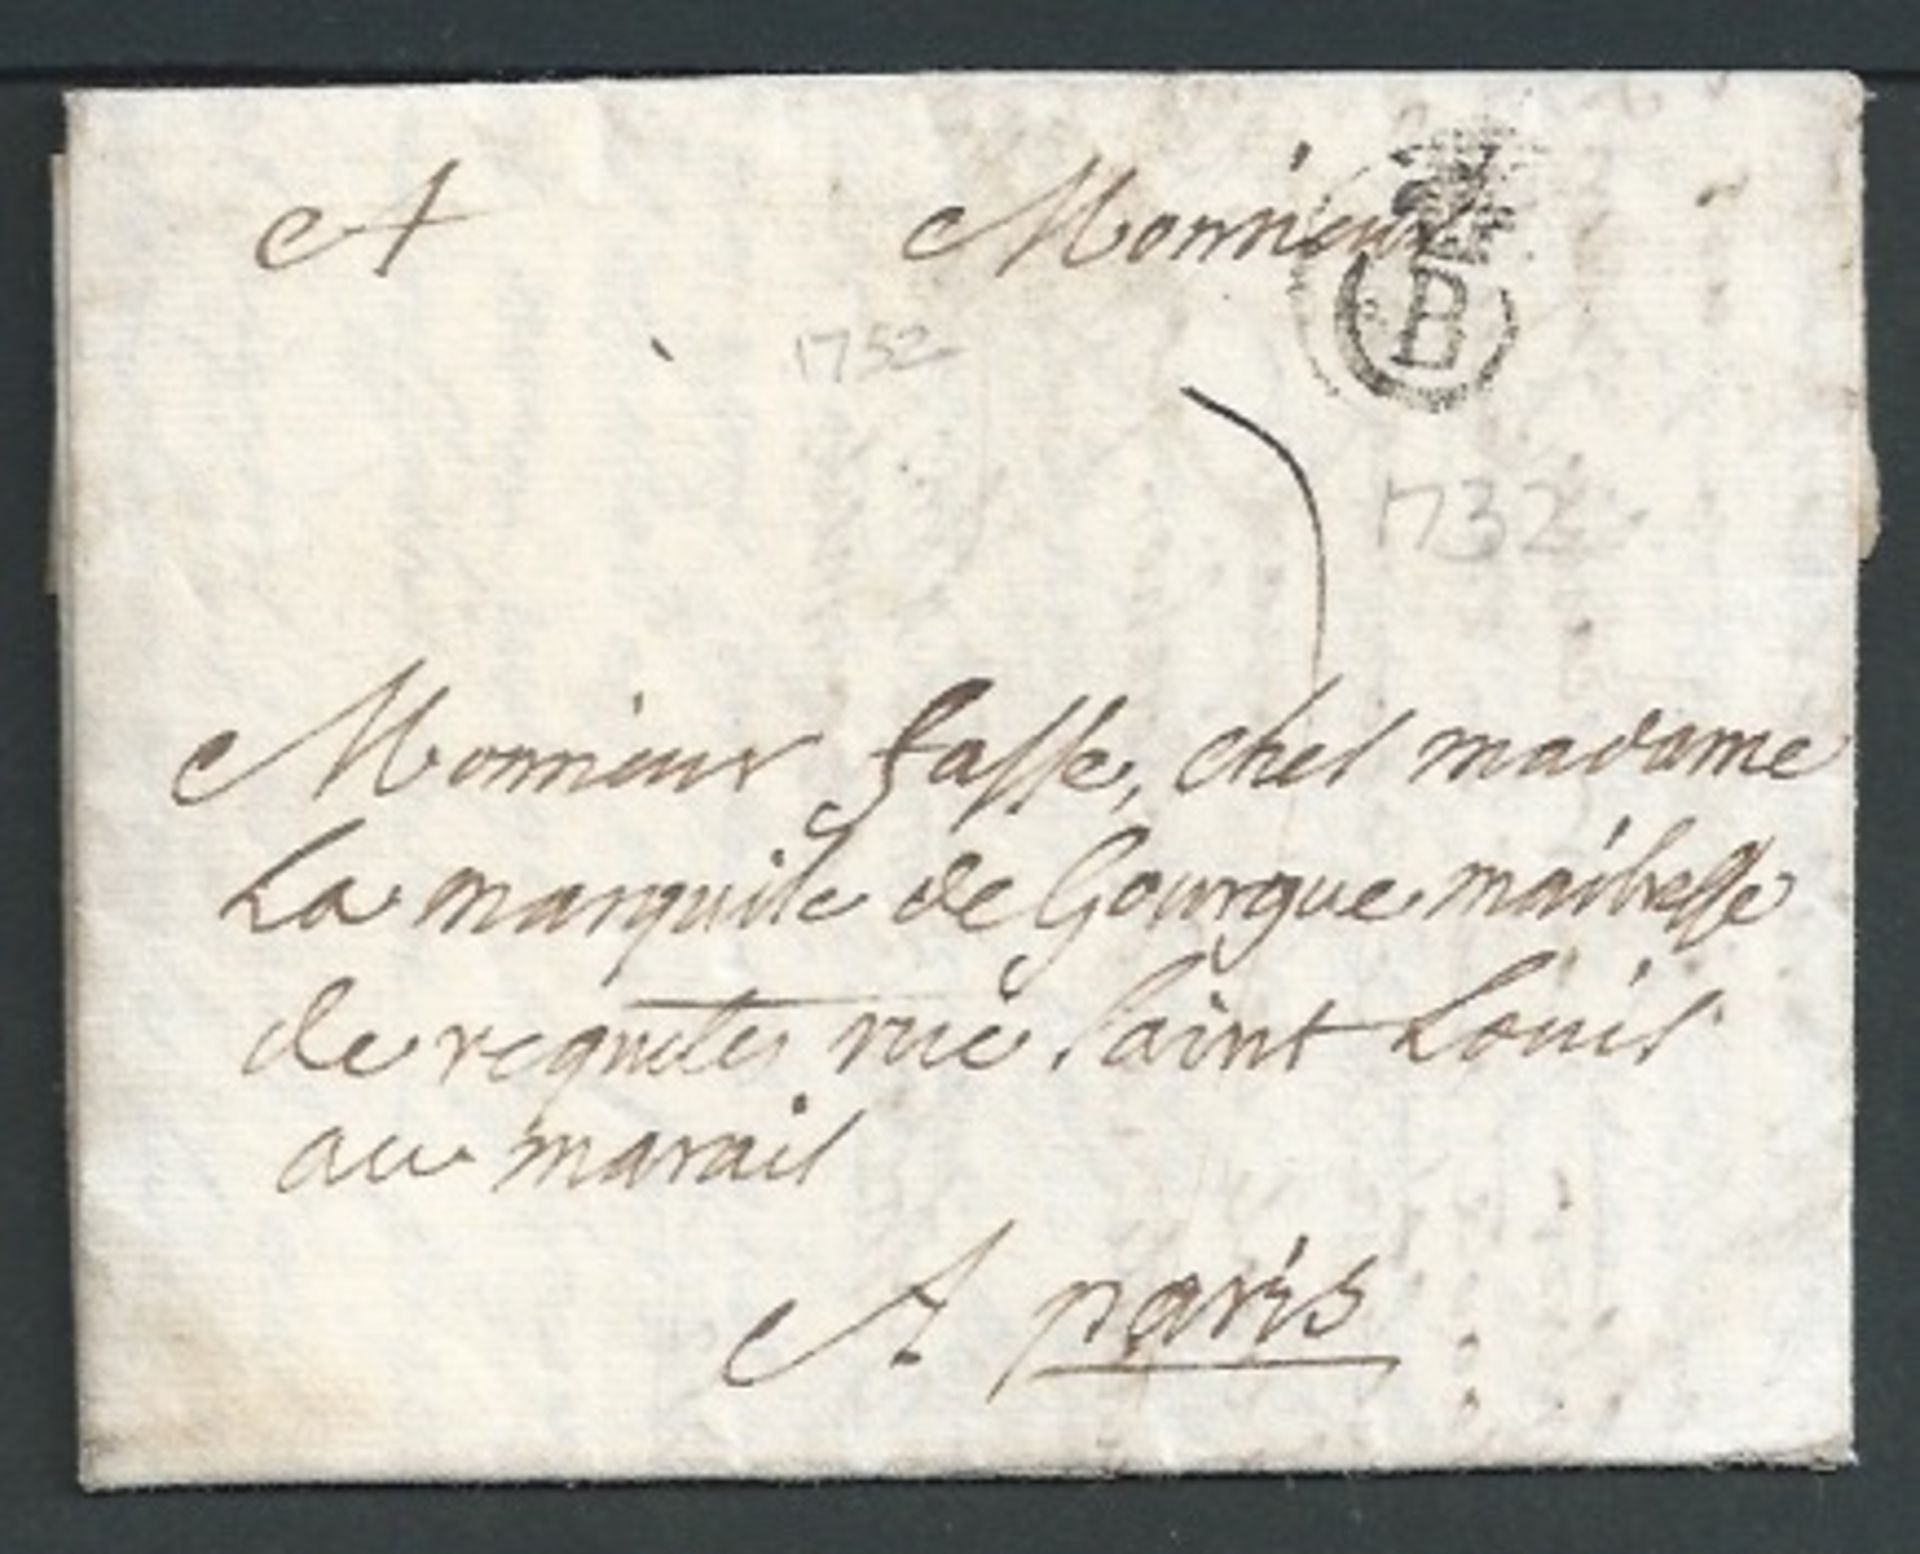 A Monsieur
B
1752
1732
Monsieur fasse, ches madame
La marquise de Gourgue maitresse
de requetes rue saint Louis
au marais
A paris